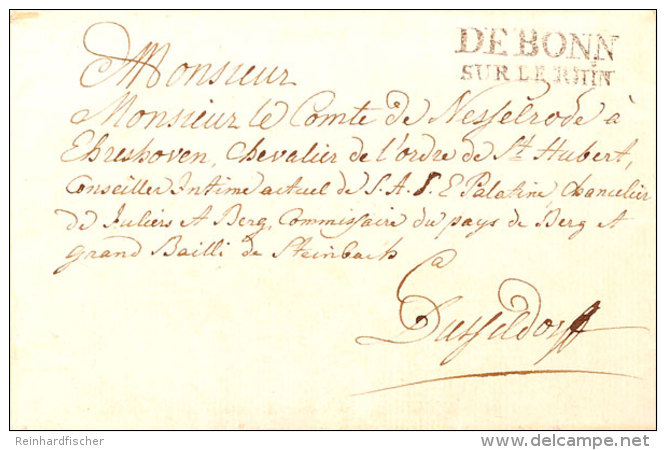 DE BONN
SUR LE RHIN
Monsieur
Monsieur le Comte de Nesselrode à
Ehreshoven, Chevalier de l'ordre de St. Hubert,
Conseiller Intime actuel de S. A. S. E Palatine, Chancelier
de Juliers et Berg, Commissaire du pays de Berg et
grand Bailli de Steinbach
a
Dusseldorff
Reinhardfischer
delcampe.net